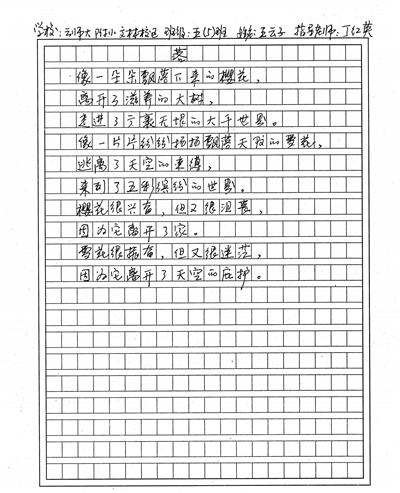 学校：云师大附小文林校区 班级：五（5）班 姓名：王云子 指导老师：丁红英
落
像一朵朵飘落下来的樱花，
离开了滋养的大树，
走进了广袤无垠的大千世界。
像一片片纷纷扬扬飘落天际的雪花，
逃离了天空的束缚，
来到了五彩缤纷的世界。
樱花很兴奋，但又很沮丧，
因为它离开了家。
雪花很振奋，但又很迷茫，
因为它离开了天空的庇护。